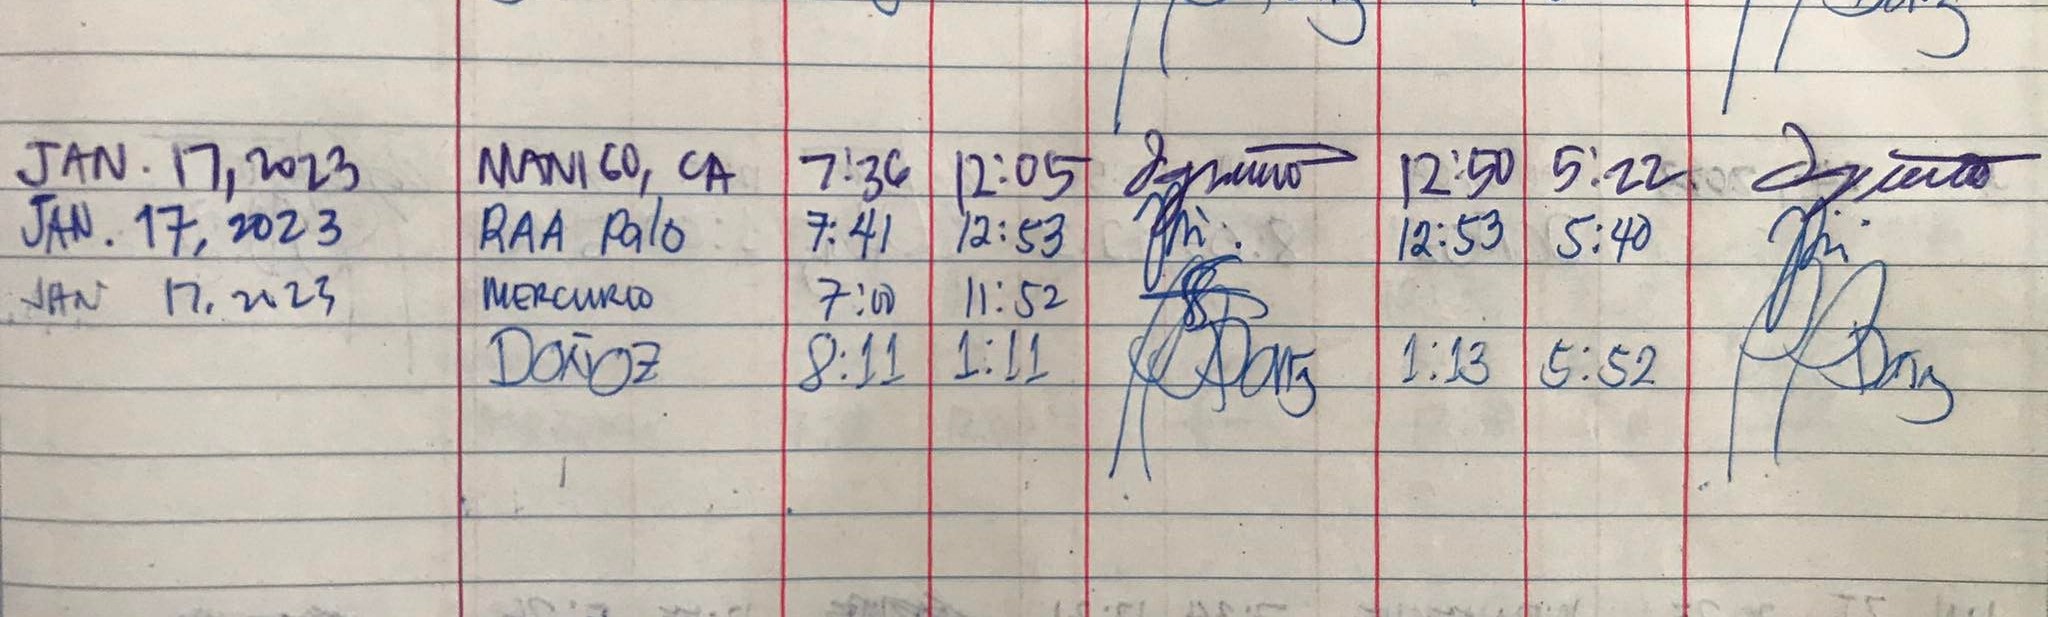 JAN. 17, 2023 MANIGO, CA 7:36 12:05 12:50 5:22
JAN. 17, 2023 RAA Palo 7:41 12:53 12:53 5:40
JAN 17, 2023 MERCURIO 7:00 11:52
DOÑOZ 8:11 1:11 1:13 5:52